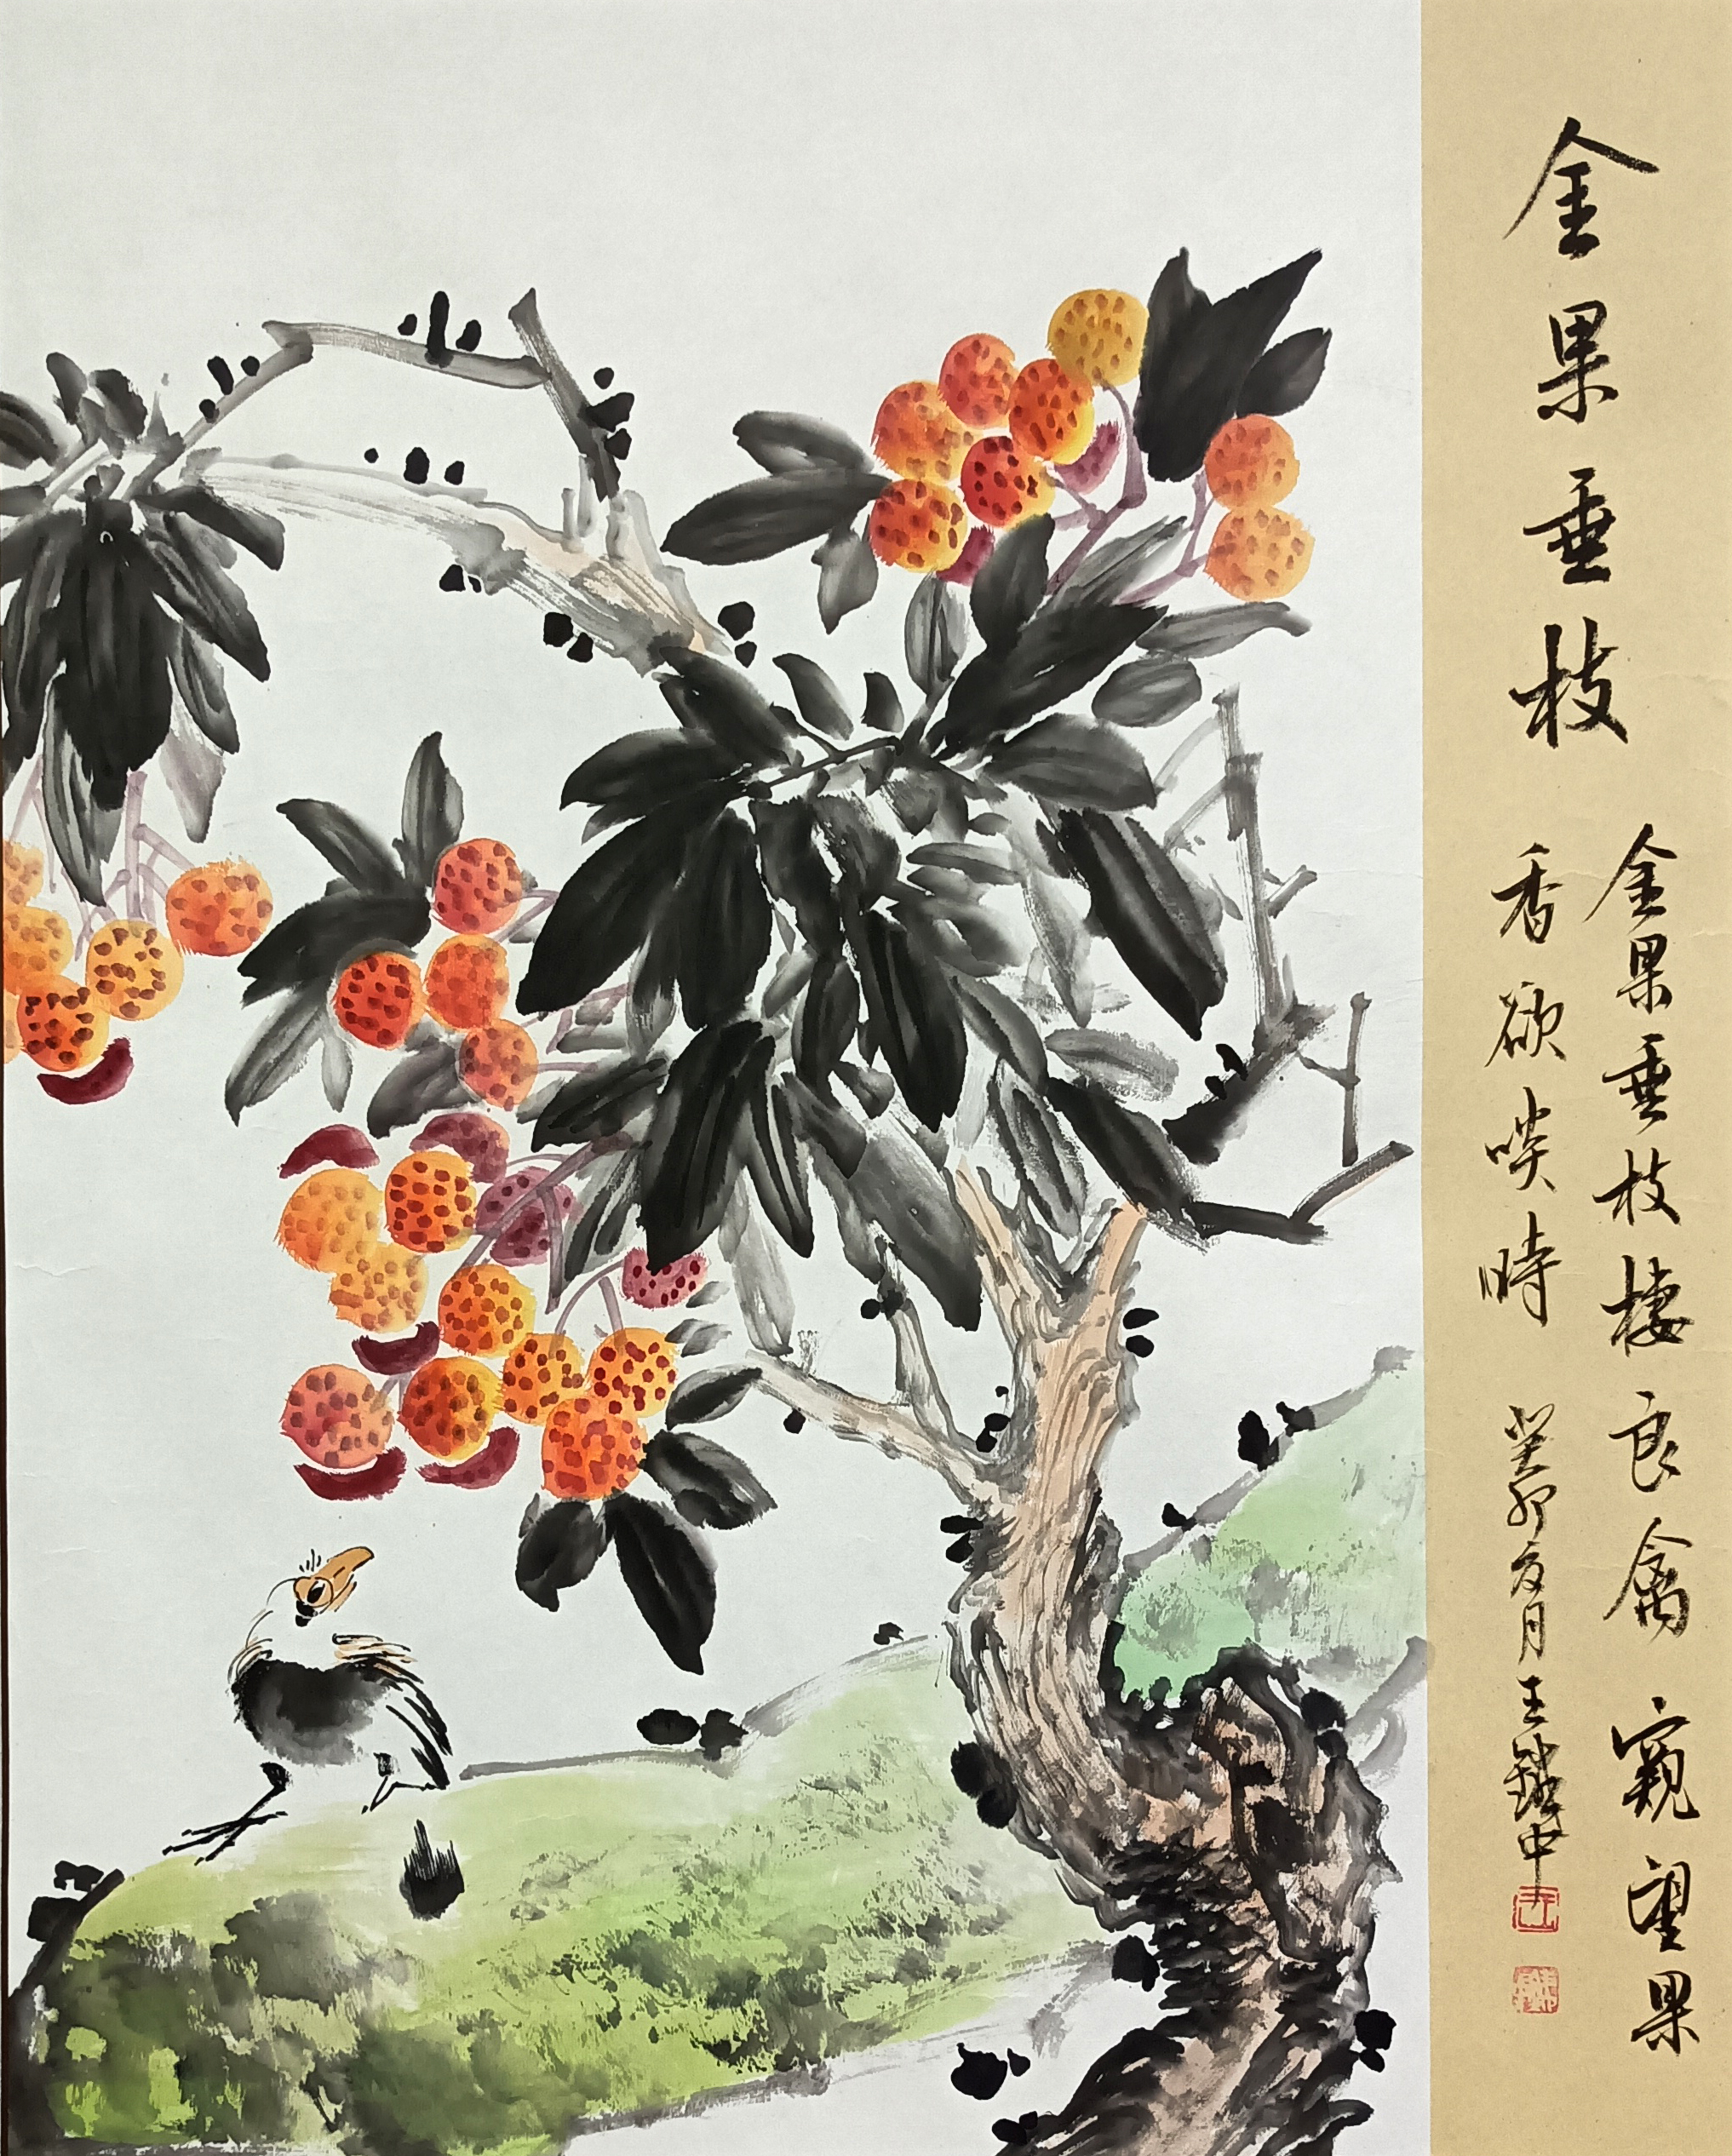 金果垂枝
金果垂枝棲良禽窺望果
香欲啖時
癸卯亥月王鏻中